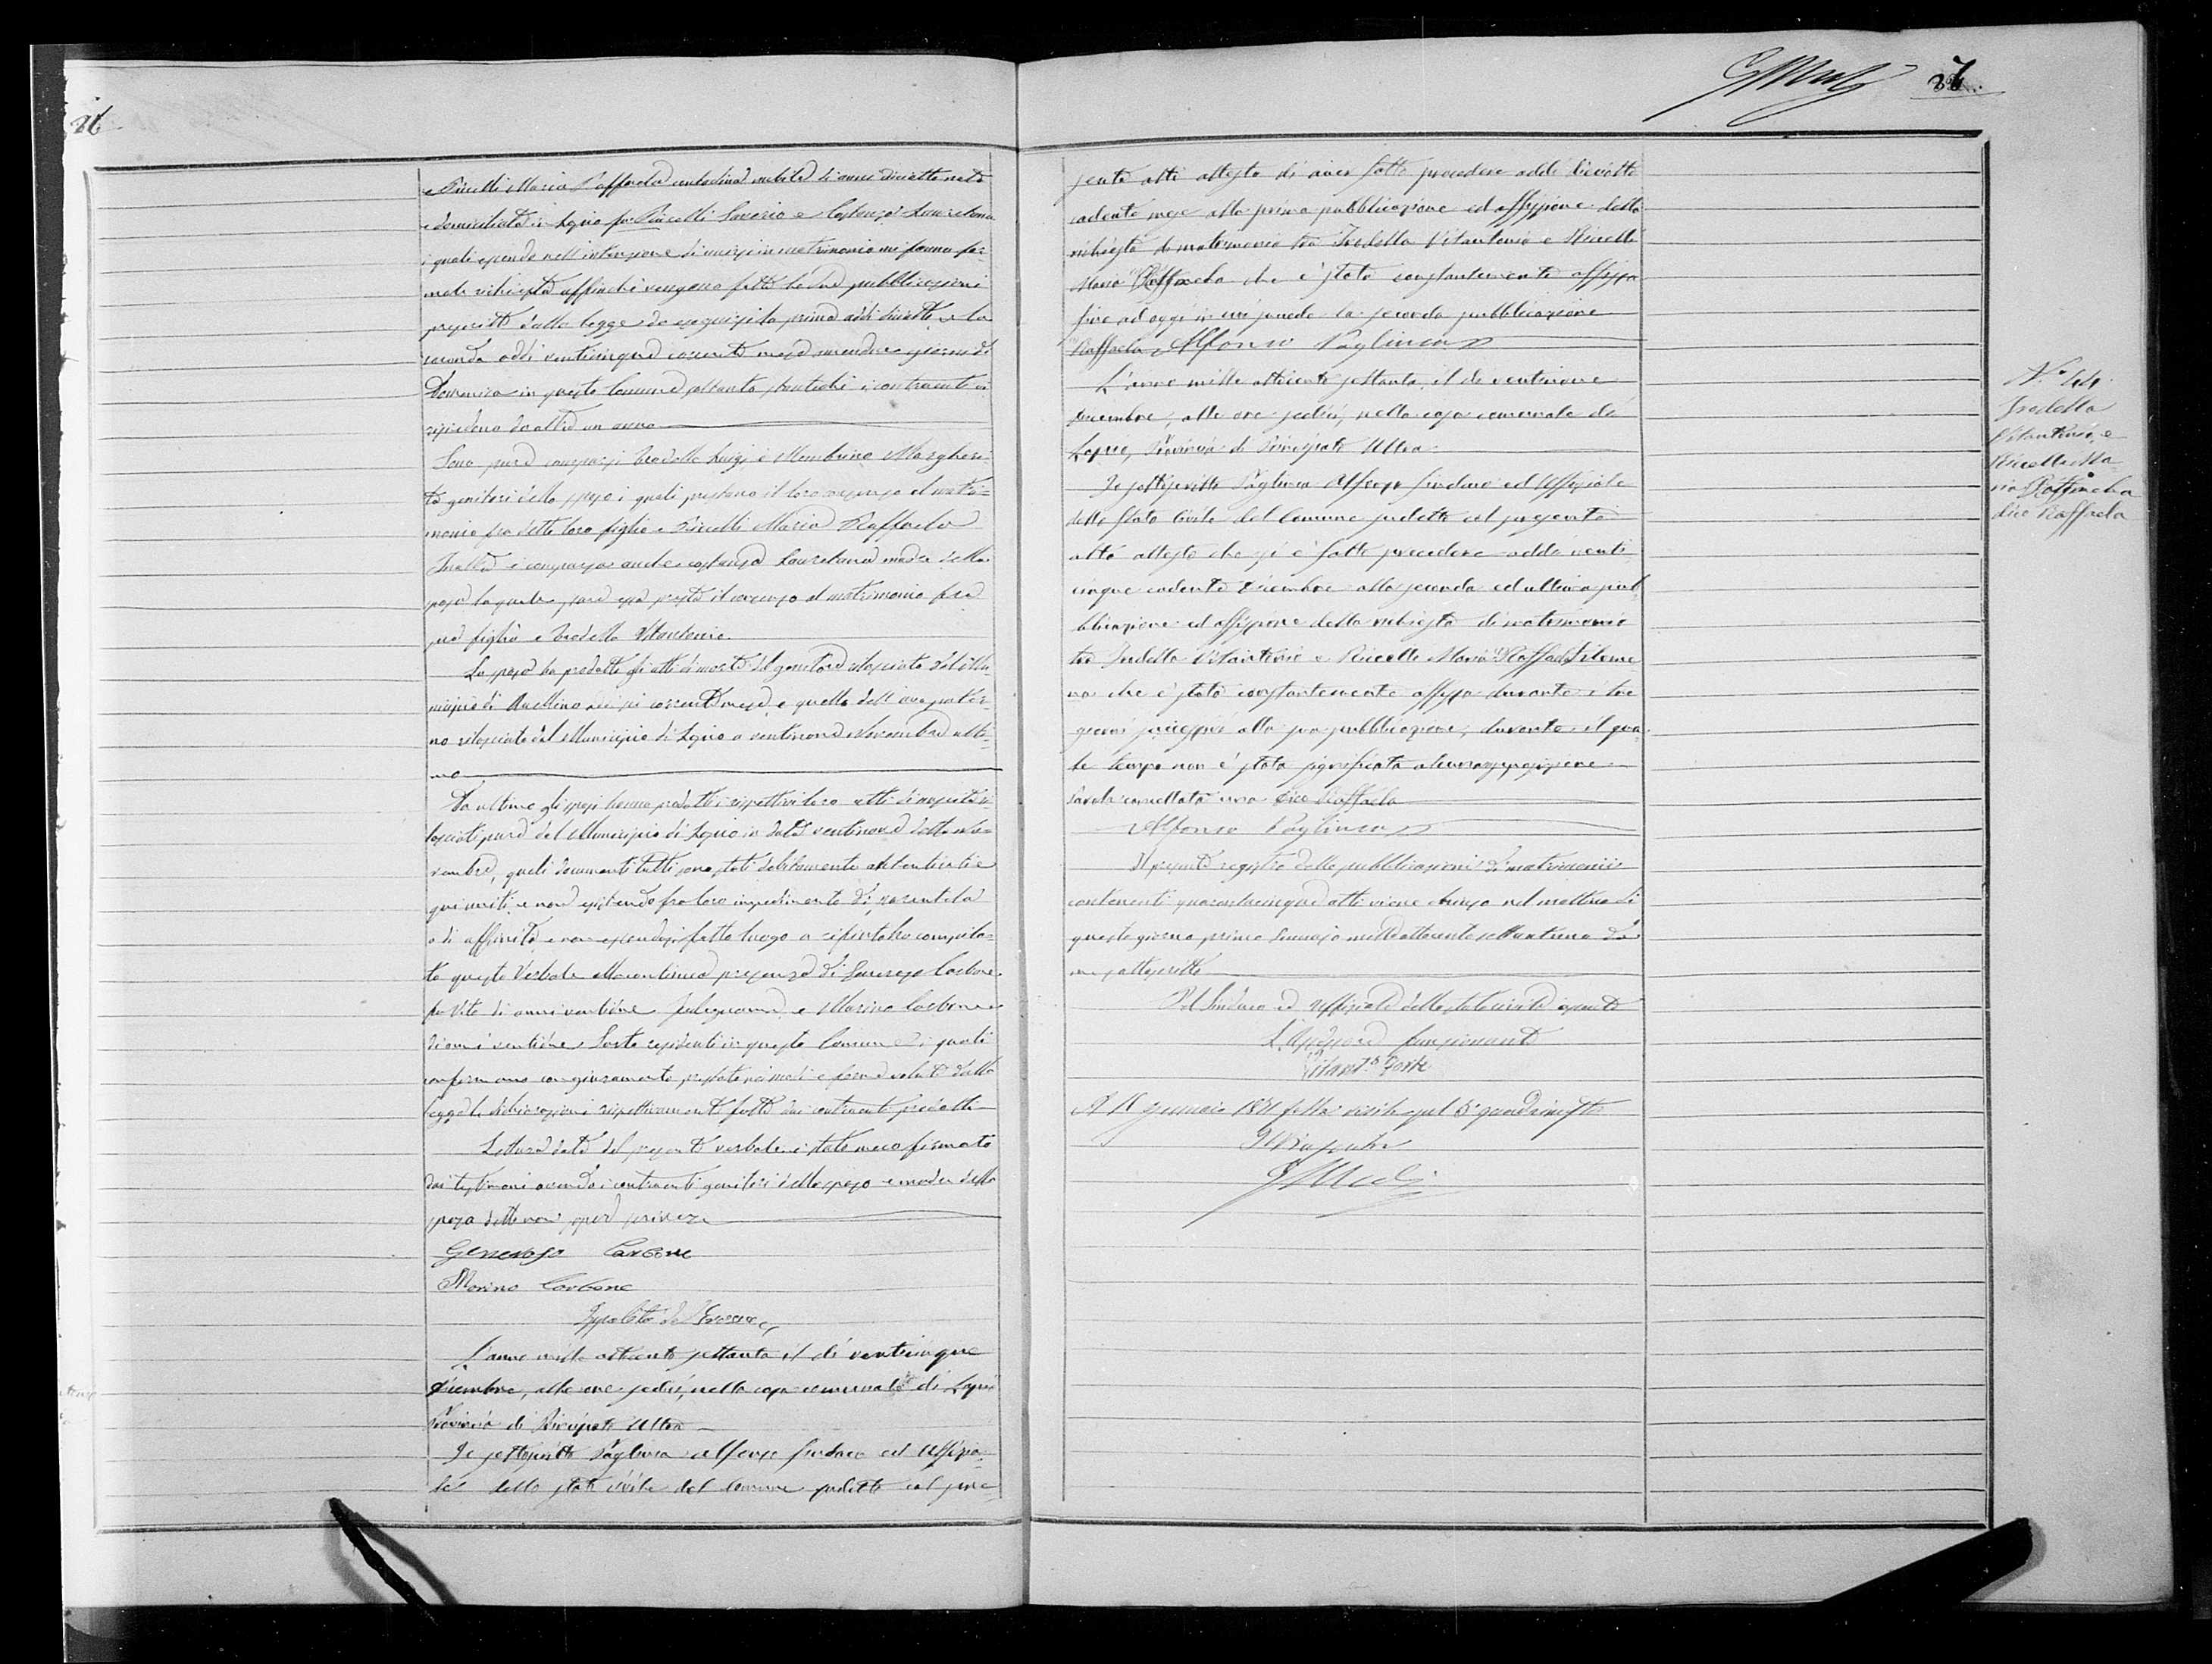 26
e Riccelli Maria Raffaela contadina nubile di anni diciotto nata
e domiciliata in Lapio fu Riccelli Saverio e Costanza Lauretana
i quali essendo nell'intenzione di unirsi in matrimonio mi fanno for-
male richiesta affinché vengano fatte le due pubblicazioni
prescritte dalla legge da eseguirsi la prima addì diciotto e la
seconda addì venticinque corrente mese amendue giorni di
Domenica in questo Comune soltanto stanteché i contraenti vi
risiedono da oltre un anno
Sono pure comparsi Iradella Luigi e Membrino Margheri-
ta genitori dello sposo i quali prestano il loro consenso al matri-
monio fra detto loro figlio e Riccelli Maria Raffaela
Inoltre è comparsa anche Costanza Lauretana madre della
sposa la quale pure essa presta il consenso al matrimonio fra
sua figlia e Iradella Vitantonio
La sposa ha prodotto gli atti di morte del genitore rilasciato dal Mu-
nicipio di Avellino a dì sei corrente mese, e quello dell'avo pater-
no rilasciato dal Municipio di Lapio a ventinove Novembre ulti-
mo
Da ultimo gli sposi hanno prodotti i rispettivi loro atti di nascita ri-
lasciati pure dal Municipio di Lapio in data ventinove detto no-
vembre, quali documenti tutti sono stati debitamente autenticati e
qui uniti, e non esistendo fra loro impedimento di parentela
o di affinità e non essendosi fatto luogo a rifiuto ho compila-
to questo Verbale alla continua presenza di Generoso Carbone
fu Vito di anni ventinove falegname e Marino Carbone
di anni ventinove Sarto residenti in questo Comune i quali
confermano con giuramento prestato nei modi e forme volute dalla
legge le dichiarazioni rispettivamente fatte dai contraenti predetti
Lettura data del presente verbale è stato meco firmato
dai testimoni avendo i contraenti genitori dello sposo e madre della
sposa detto non saper scrivere
Generoso Carbone
Marino Carbone
Ippolito
L'anno mille ottocento settanta il dì venticinque
Dicembre, alle ore sedici, nella casa comunale di Lapio
Provincia di Principato Ultra
Io sottoscritto Pagliuca Alfonso Sindaco ed Uffizia-
le dello stato civile del Comune sudetto col pre-
27
sente atto attesto di aver fatto procedere addì diciotto
cadente mese alla prima pubblicazione ed affissione della
richiesta di matrimonio tra Iradella Vitantonio e Riccelli
Maria Raffaela che è stata constantemente affissa
fino ad oggi in cui succede la seconda pubblicazione
Raffaela Alfonso Pagliuca
L'anno mille ottocento settanta, il dì ventinove
Dicembre, alle ore sedici, nella casa comunale di
Lapio, Provincia di Principato Ultra
Io sottoscritto Pagliuca Alfonso Sindaco ed Uffiziale
dello Stato Civile del Comune sudetto col presente
atto attesto che si è fatto procedere addì venti
cinque cadente Dicembre alla seconda ed ultima pub
blicazione ed affissione della richiesta di matrimonio
tra Iradella Vitantonio e Riccelli Maria Raffaela Filome
na che è stata constantemente affissa durante i tre
giorni successivi alla sua pubblicazione, durante il qua-
le tempo non è stata significata alcuna opposizione
Parola cancellata una dico Raffaela
Alfonso Pagliuca
Il presente registro delle pubblicazioni di matrimonii
contenenti quarantacinque atti viene chiuso nel mattino di
questo giorno primo Gennajo mille ottocento settantuno da
me sottoscritto
Pel Sindaco ed Uffiziale dello stato civile assente
L'Assessore funzionante
Vitant.o Forte
A 18 gennaio 1871 fatta visita pel 3° quadrimestre
N.° 44
Iradella
Vitantonio, e
Riccelli Ma-
ria Raffaela
dico Raffaela